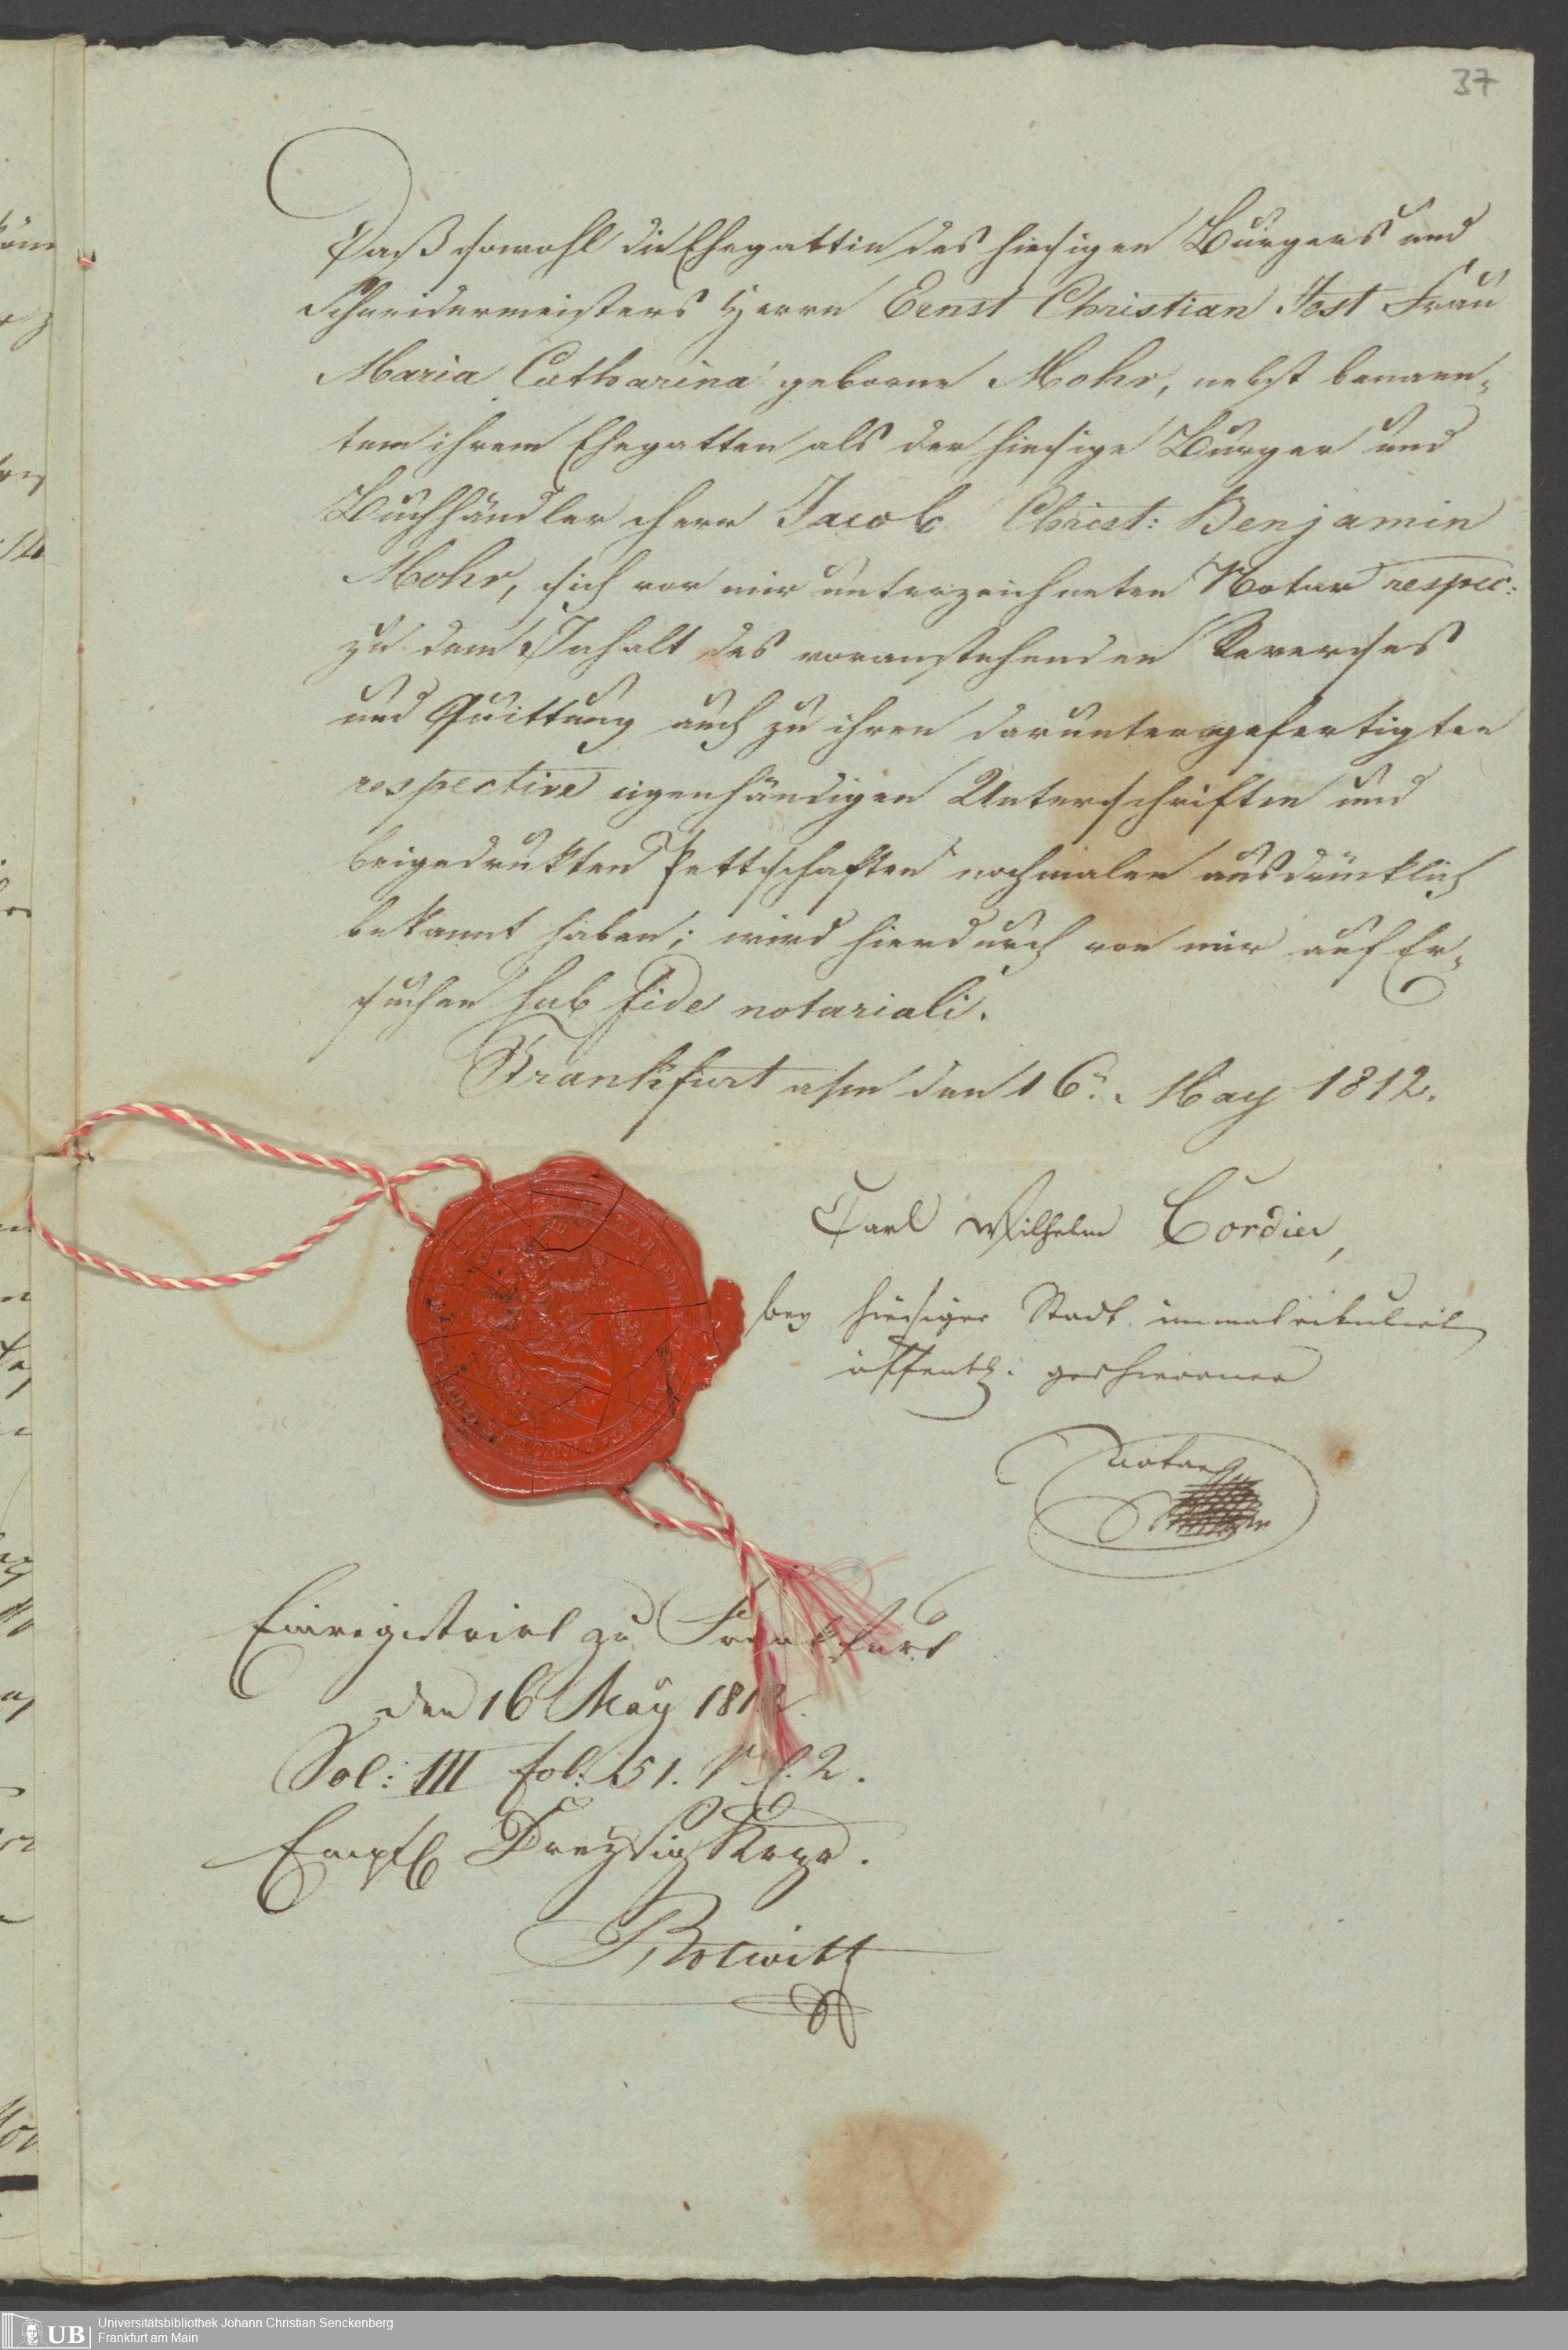 37
Daß sowohl die Ehegattin des hiesigen Bürgers und
Schneidermeisters Herrn Ernst Christian Jost Frau
Maria Catharina geborne Mohr, nebst benann-
tem ihrem Ehegatten als der hiesige Burger und
Buchhändler Herr Jacob Christ: Benjamin
Mohr, sich vor mir unterzeichneten Notar respec:
zu dem Inhalt des voranstehenden Reverses
und Quittung auch zu ihren daruntergefertigten
respective eigenhändigen Unterschriften und
beigedrukten Pettschaften nochmalen ausdrücklich
bekannt haben; wird hierdurch von mir auf Er-
suchen sub fide notariali.
Frankfurt a/m den 16n. May 1812.
Carl Wilhelm Cordier,
bey hiesiger Stadt immatrikulirt
öffentl: geschworner
Notar
Einregistrirt zu Frankfurt
den 16 May 1812.
Vol: III fol. 51. 2.
Empf Dreyßig Krzr.